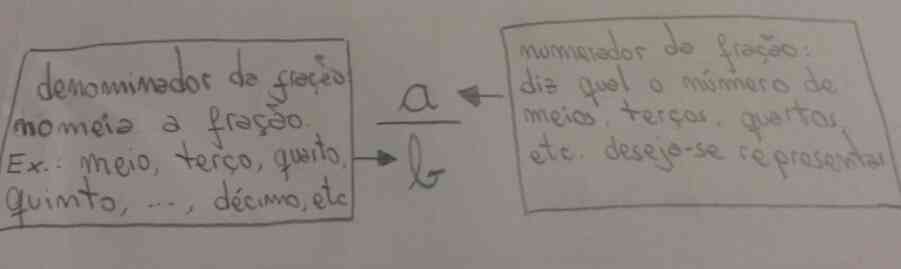 denominador da fração
nomeia a fração.
Ex.: meio, terço, quarto,
quinto, ..., décimo, etc
a
b
numerador da fração:
diz qual o número de
meios, terços, quartos,
etc. deseja-se representar